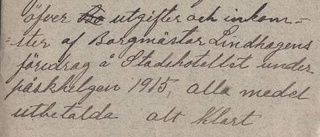 öfver utgifter och inkom-
ster af Borgmästar Lindhagens
föredrag å Stadshotellet under
påskhelgen 1915, alla medel
utbetalda allt klart